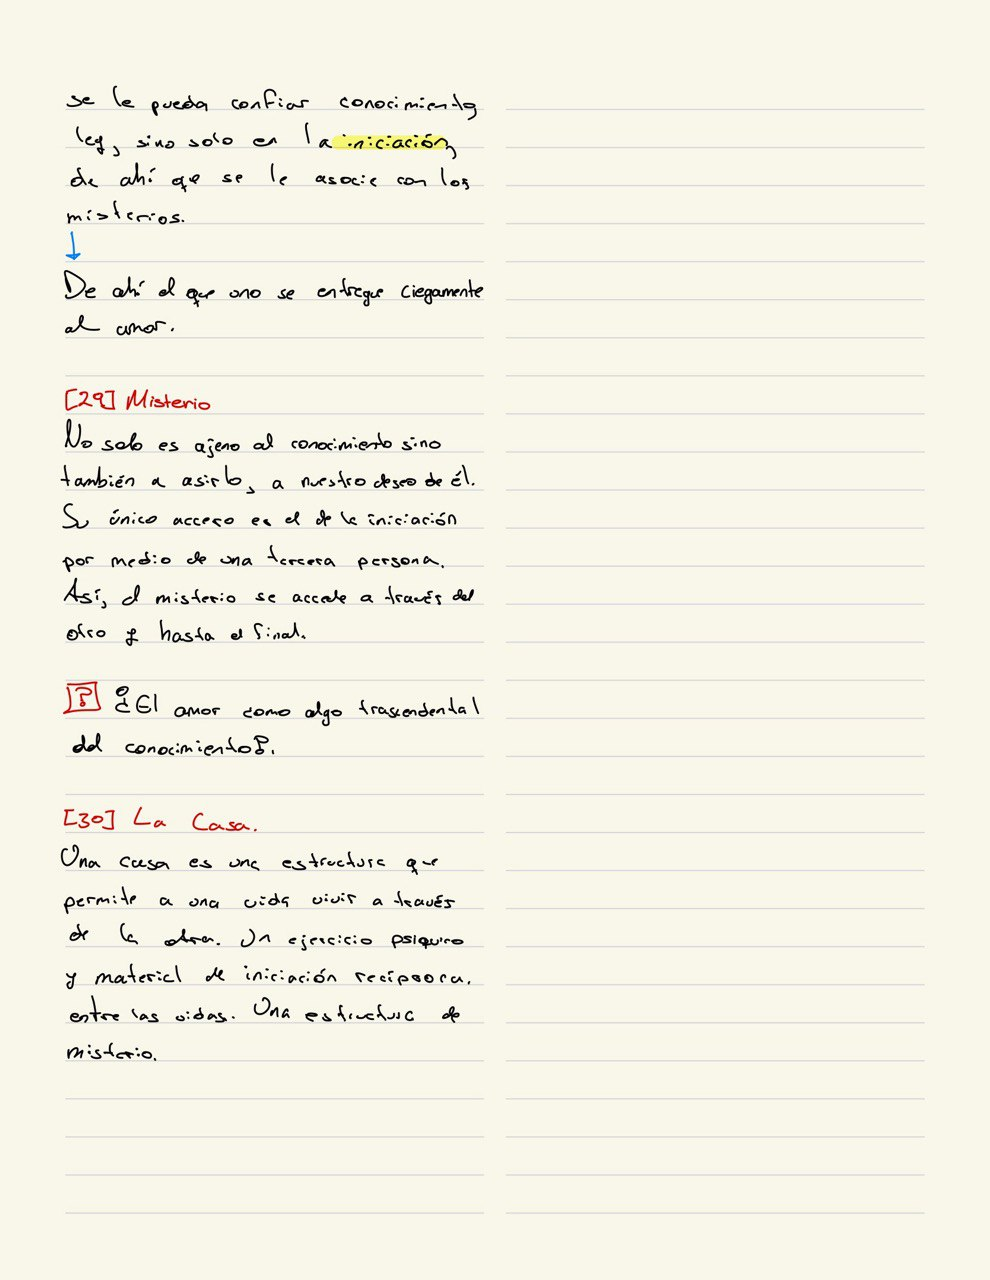 se le pueda confiar conocimiento,
ley, sino solo en la iniciación,
de ahí que se le asocie con los
misterios.
↓
De ahí el que uno se entregue ciegamente
al amor.
[29] Misterio
No solo es ajeno al conocimiento sino
también a asirlo, a nuestro deseo de él.
Su único acceso es el de la iniciación
por medio de una tercera persona.
Así, el misterio se accede a través del
otro y hasta el final.
[?] ¿El amor como algo trascendental
del conocimiento?.
[30] La Casa.
Una casa es una estructura que
permite a una vida vivir a través
de la otra. Un ejercicio psíquico
y material de iniciación recíproca.
entre las vidas. Una estructura de
misterio.